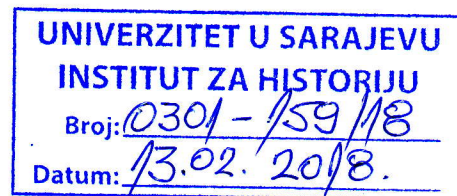 UNIVERZITET U SARAJEVU
INSTITUT ZA HISTORIJU
Broj: 0301-159/18
Datum: 13.02. 2018.